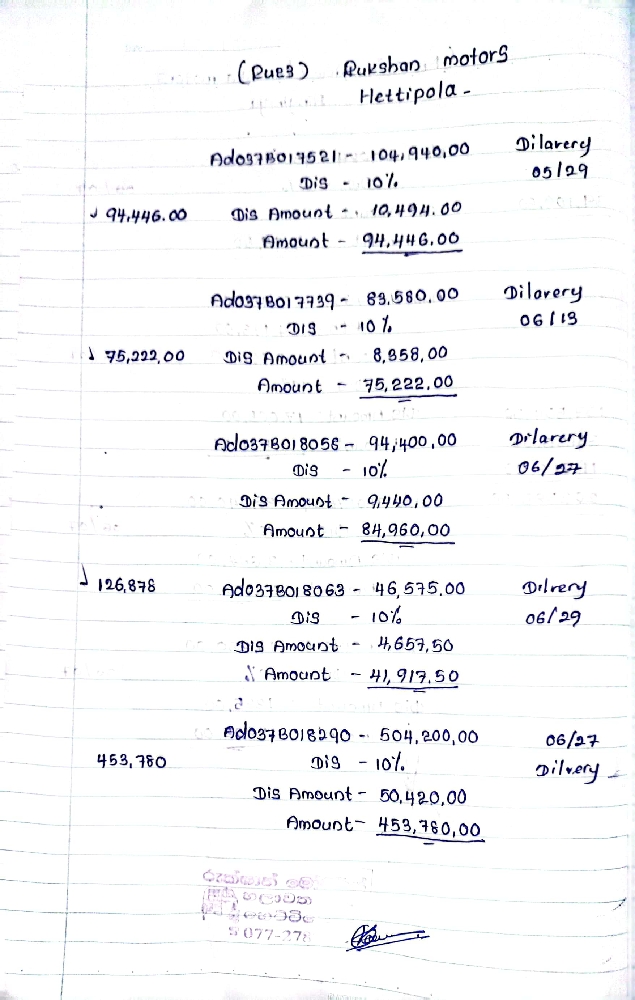 (Rue3) Rukshan motors
Hettipola -
Ado37B017521 - 104,940,00 Dilarery
Dis - 10% 05/29
94,446.00 Dis Amount - 10,494.00
Amount - 94,446,00
Ado37B017739 - 83,580.00 Dilarery
Dis - 10% 06/13
75,222,00 Dis Amount - 8,358,00
Amount - 75,222.00
Ado37B018056 - 94,400,00 Dilarery
Dis - 10% 06/27
Dis Amount - 9,440,00
Amount - 84,960,00
126,878 Ado37B018063 - 46,575.00 Dilrery
Dis - 10% 06/29
Dis Amount - 4,657,50
Amount - 41,917.50
Ado37B018290 - 504,200,00 06/27
453,780 Dis - 10% Dilvery -
Dis Amount - 50,420,00
Amount - 453,780,00
හලාවත
077-278